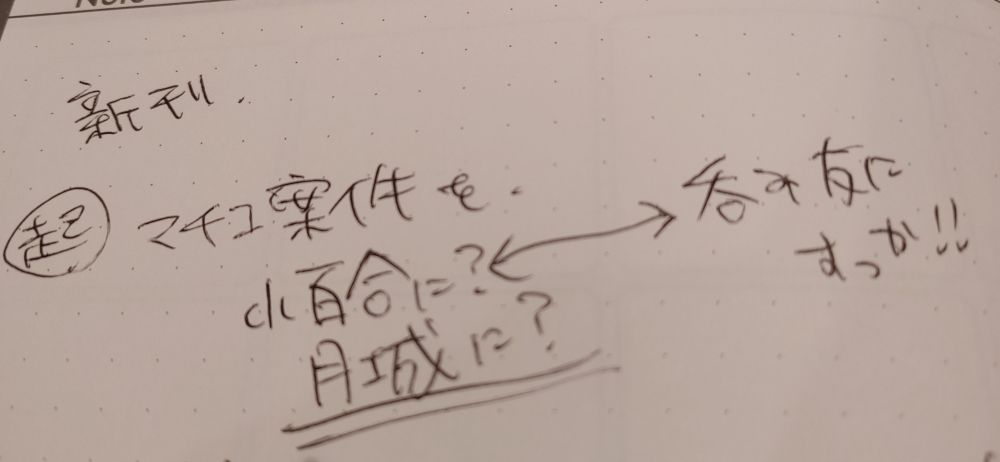 新刊.
起 マチコ案件を.
小百合に?
月城に?
呑み友に
すっか!!